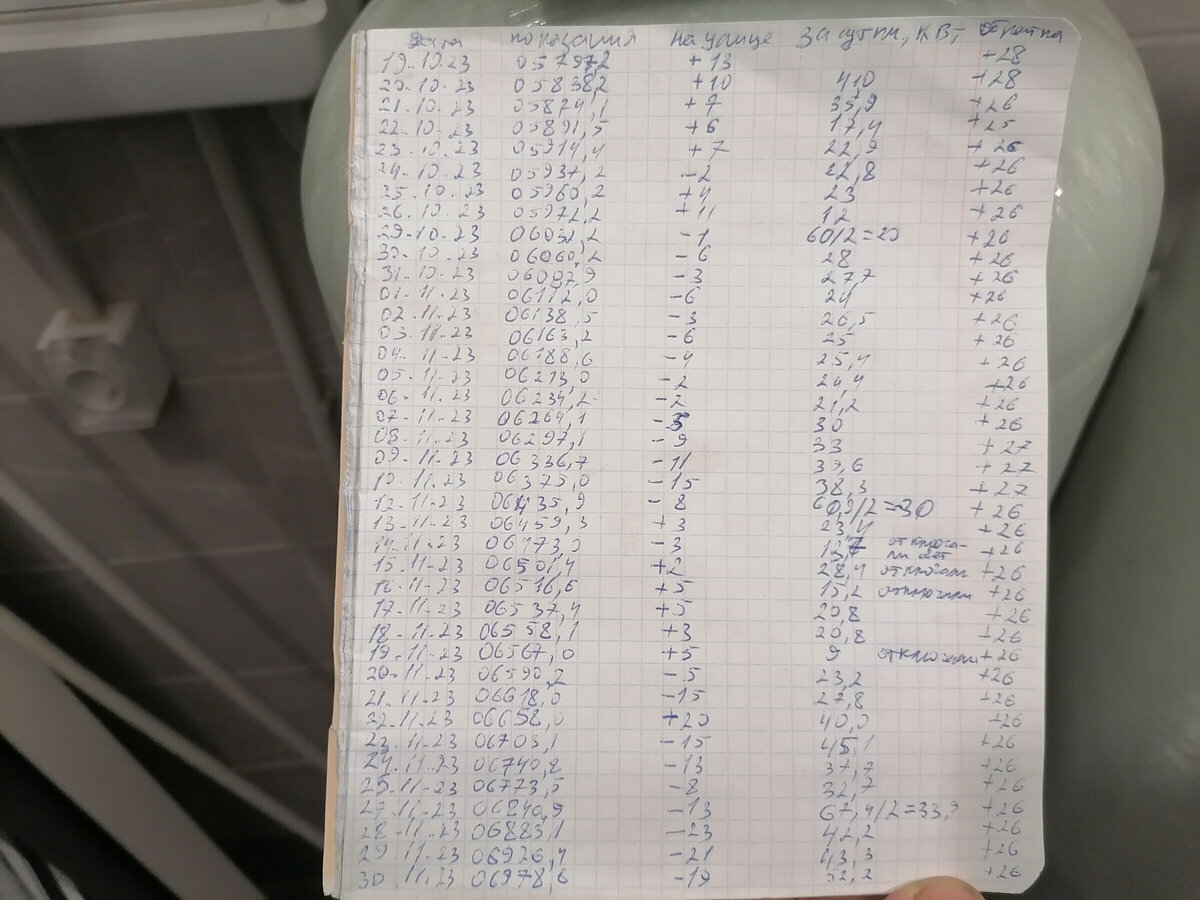 Дата показания на улице за сутки, КВт, обратка
19.10.23 05797,2 +13 +28
20.10.23 05838,2 +10 41,0 +28
21.10.23 05874,1 +7 35,9 +26
22.10.23 05891,5 +6 17,4 +25
23.10.23 05914,4 +7 22,9 +26
24.10.23 05937,2 -2 22,8 +26
25.10.23 05960,2 +4 23 +26
26.10.23 05972,2 +11 12 +26
29.10.23 06032,2 -1 60/2=20 +26
30.10.23 06060,2 -6 28 +26
31.10.23 06087,9 -3 27,7 +26
01.11.23 06112,0 -6 24 +26
02.11.23 06138,5 -3 26,5 +26
03.11.23 06163,2 -6 25 +26
04.11.23 06188,6 -4 25,4 +26
05.11.23 06213,0 -2 24,4 +26
06.11.23 06234,2 -2 21,2 +26
07.11.23 06264,1 -5 30 +26
08.11.23 06297,1 -9 33 +27
09.11.23 06336,7 -11 39,6 +27
10.11.23 06375,0 -15 38,3 +27
12.11.23 06435,9 -8 60,9/2=30 +26
13.11.23 06459,3 +3 23,4 +26
14.11.23 06473,0 -3 13,7 отключали свет +26
15.11.23 06501,4 +2 28,4 отключали +26
16.11.23 06516,6 +5 15,2 отключали +26
17.11.23 06537,4 +5 20,8 +26
18.11.23 06558,1 +3 20,8 +26
19.11.23 06567,0 +5 9 отключали +26
20.11.23 06590,2 -5 23,2 +26
21.11.23 06618,0 -15 27,8 +26
22.11.23 06658,0 +20 40,0 +26
23.11.23 06703,1 -15 45,1 +26
24.11.23 06740,8 -13 37,7 +26
25.11.23 06773,5 -8 32,7 +26
27.11.23 06840,9 -13 67,4/2=33, +26
28.11.23 06883,1 -23 42,2 +26
29.11.23 06926,4 -21 43,3 +26
30.11.23 06978,6 -19 52,2 +26